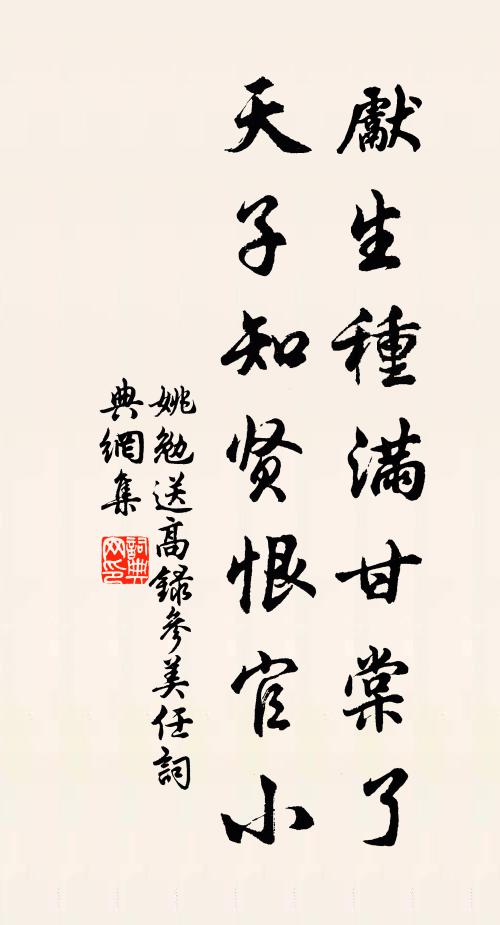 獻生種滿甘棠了
天子知贤恨官小
姚勉送高録參美任詞
典網集
詞典网印